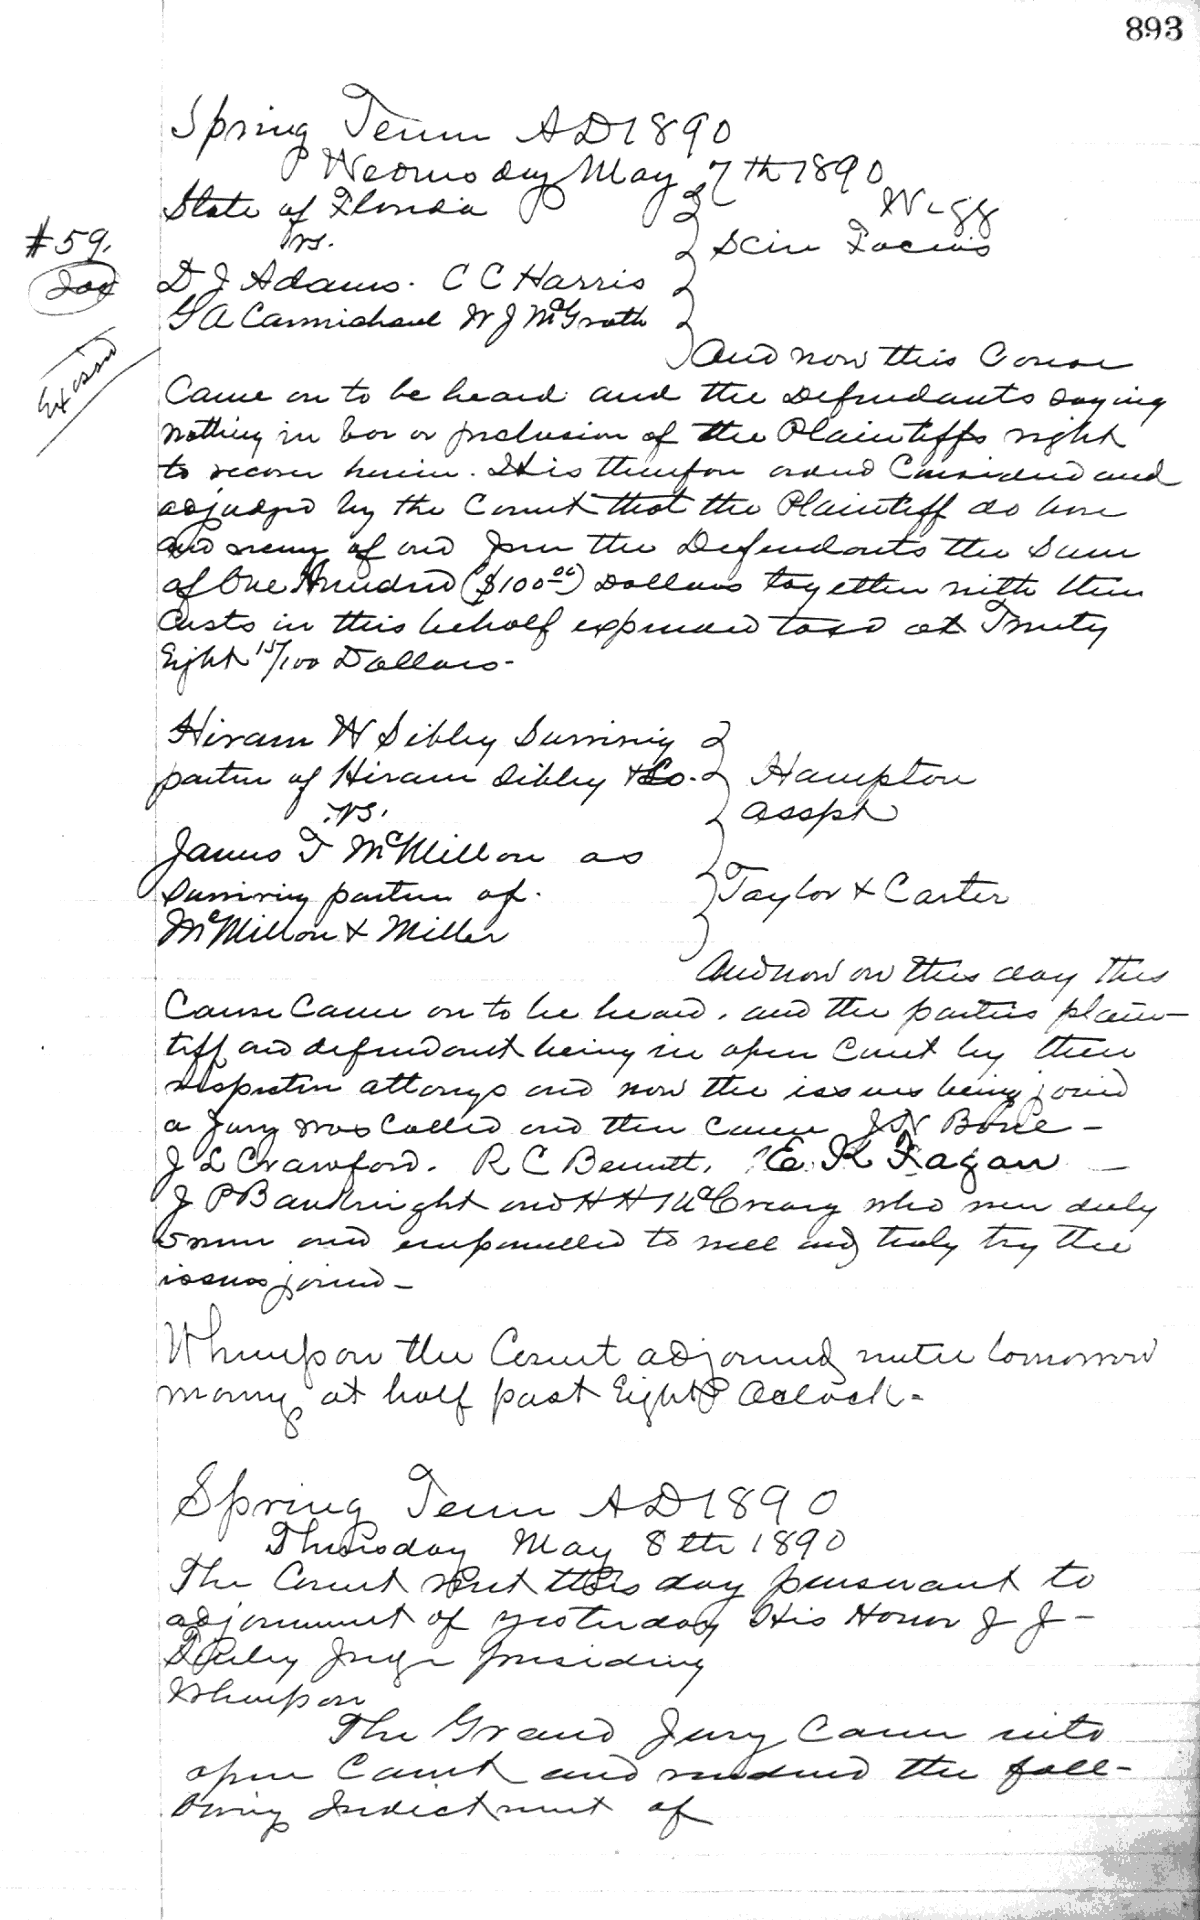 893
Spring Term AD 1890
Wednesday May 7th 1890
State of Florida
vs.
Scire Facias
#59.
D J Adams. C C Harris
G A Carmichael W J McGrath
And now this Cause
Came on to be heard and the Defendants saying
nothing in bar or preclusion of the Plaintiffs right
to recover herein. It is therefore ordered Considered and
adjudged by the Court that the Plaintiff do have
and recover of and from the Defendants the Sum
of One Hundred ($100.00) Dollars together with their
Costs in this behalf expended taxed at Twenty
Eight 15/100 Dollars-
Hiram W Sibley Surviving
partner of Hiram Sibley & Co.
Hampton
vs.
Asspt
James T McMillon as
Surviving partner of.
Taylor & Carter
McMillon & Miller
And now on this day this
Cause Came on to be heard. and the parties plain-
tiff and defendant being in open Court by their
respective attorneys and now the issues being joined
a Jury was Called and then came J N Bone -
J L Crawford. R C Bennett. E. K Fagan -
J P Baukright and H H McCreary who were duly
sworn and empanelled to well and truly try the
issues joined -
Whereupon the Court adjourned until tomorrow
morning at half past Eight Oclock -
Spring Term AD 1890
Thursday May 8th 1890
The Court met this day pursuant to
adjournment of yesterday His Honor J J -
Finley Judge presiding
Whereupon
The Grand Jury Came into
open Court and rendered the foll-
owing Indictment of